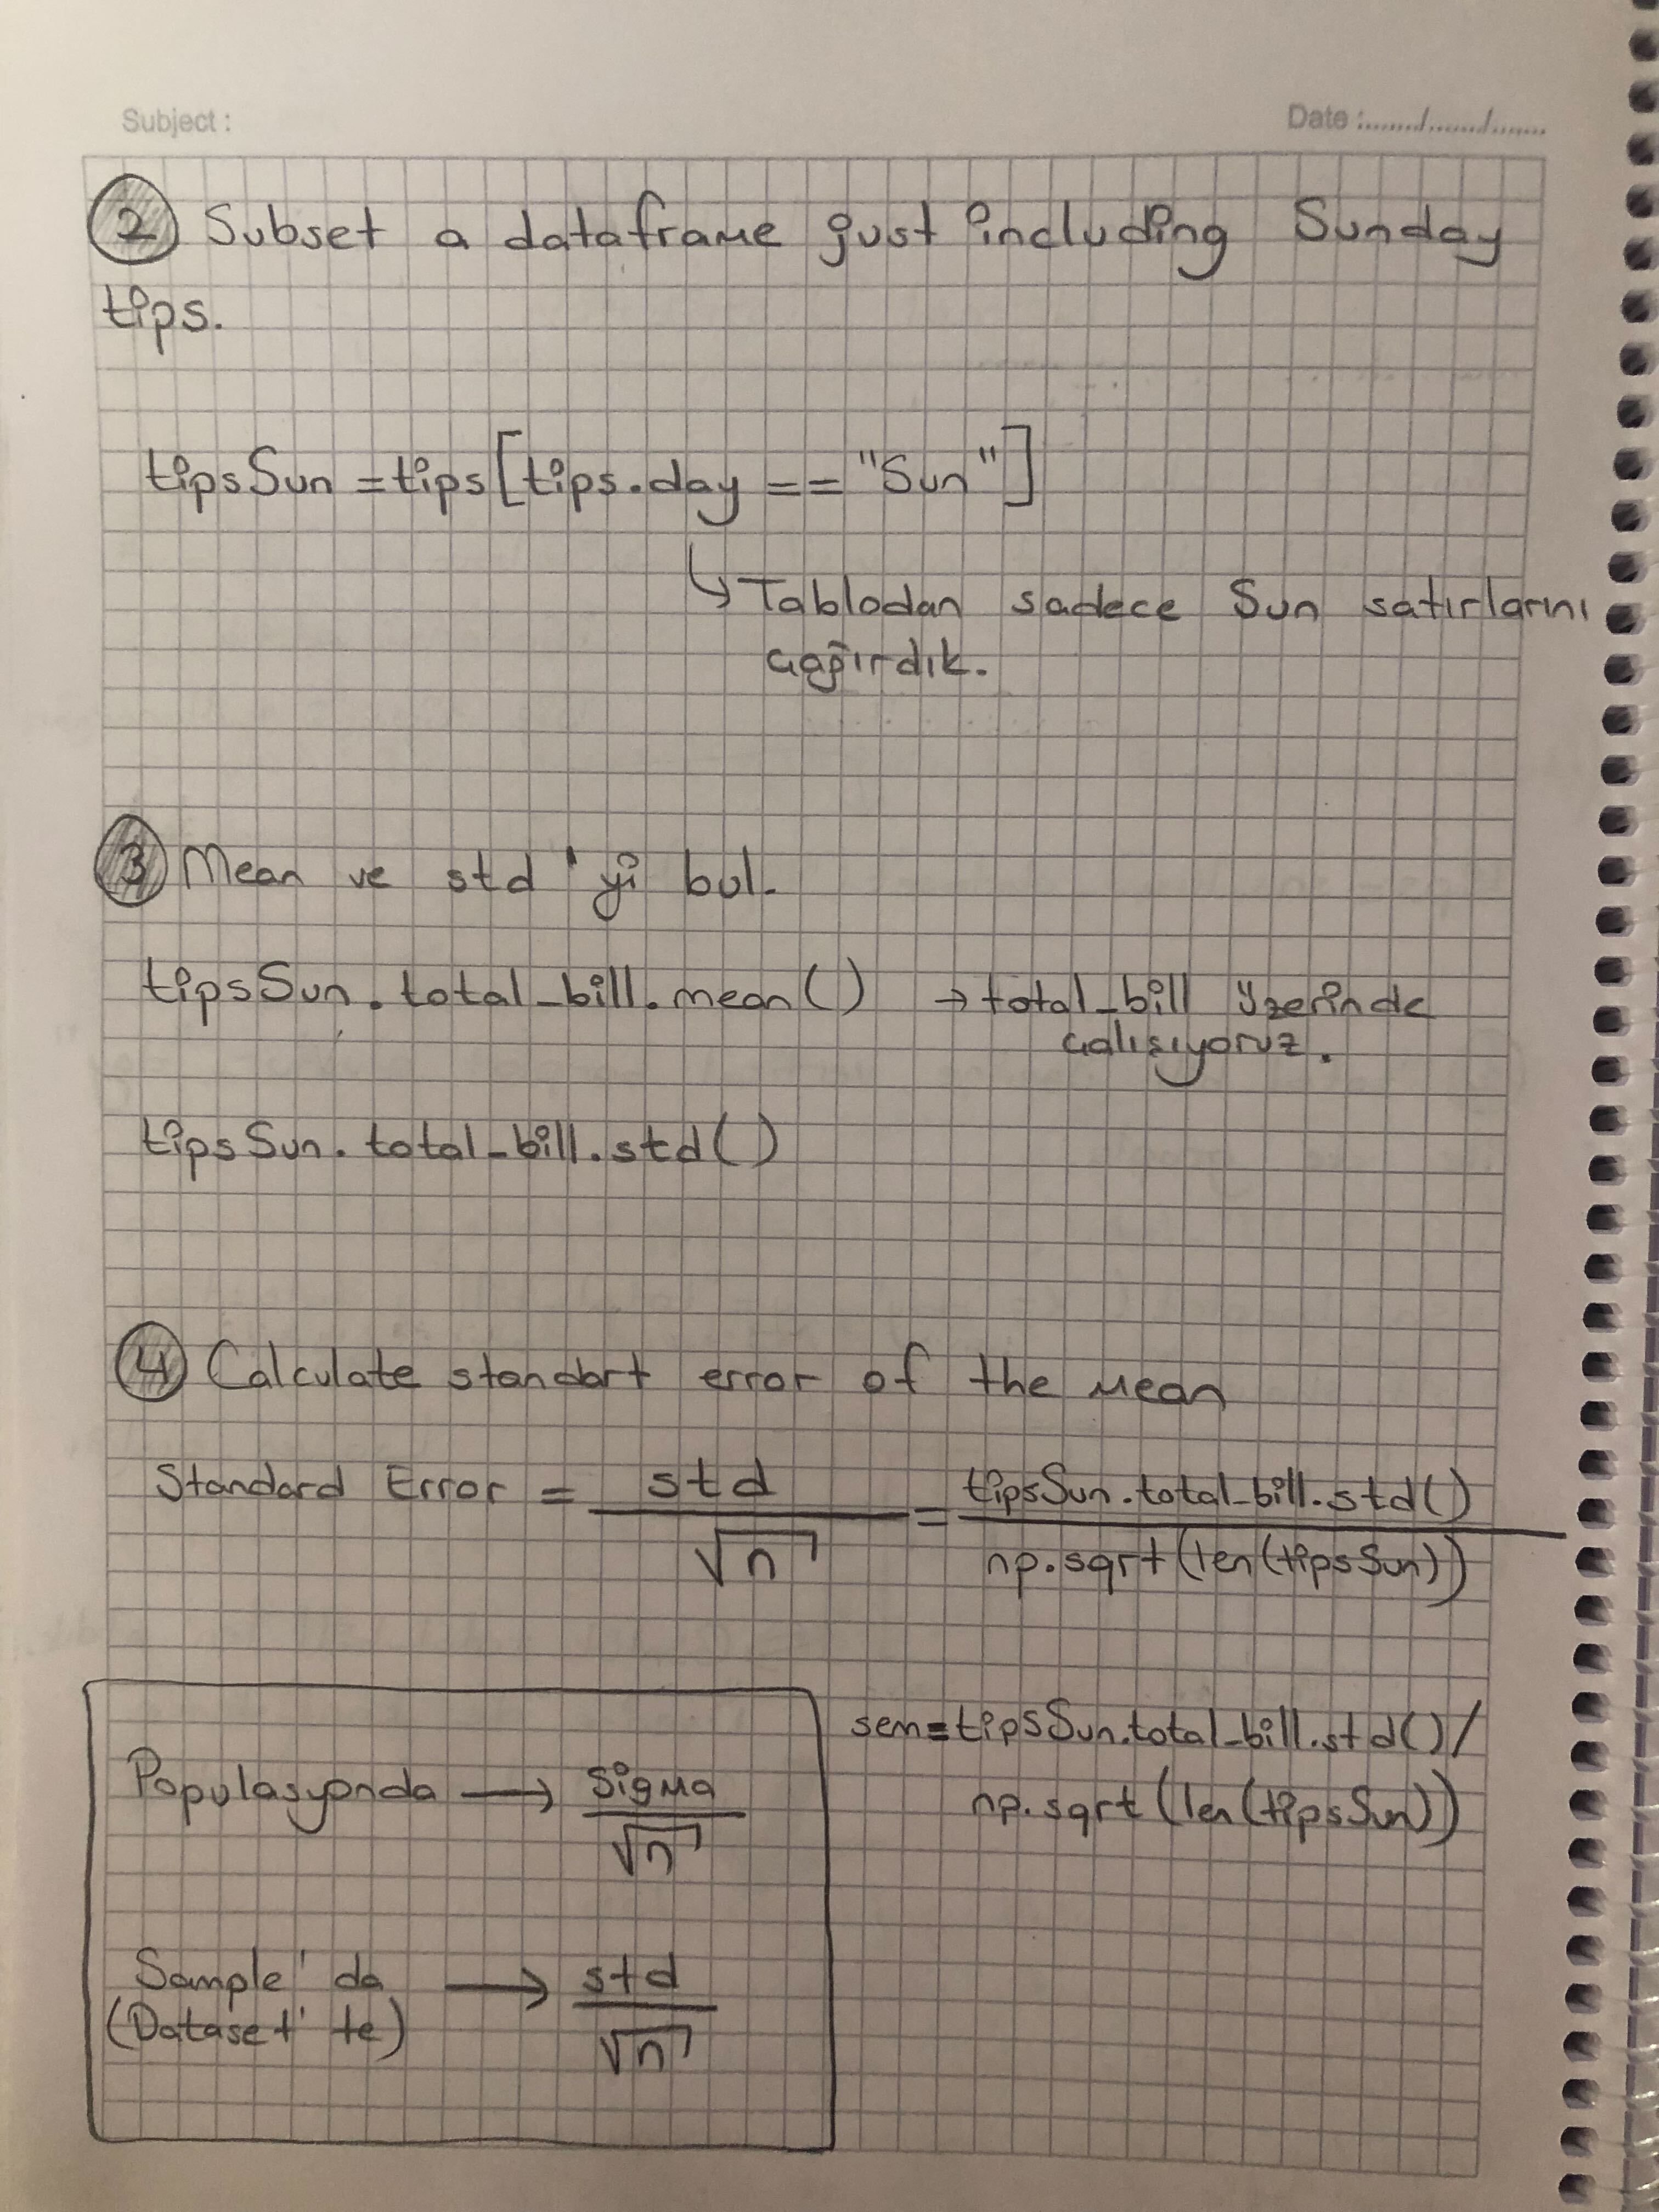 Subject :
Date :......./......./.......
2 Subset a dataframe just including Sunday
tips.
tipsSun = tips[tips.day == "Sun"]
↳ Tablodan sadece Sun satırlarını
çağırdık.
3 Mean ve std 'yi bul.
tipsSun.total_bill.mean() → total_bill üzerinde
çalışıyoruz.
tipsSun.total_bill.std()
4 Calculate standart error of the mean
Standard Error = std / √n = tipsSun.total_bill.std() / np.sqrt(len(tipsSun))
sem = tipsSun.total_bill.std() /
np.sqrt(len(tipsSun))
Populasyonda → sigma / √n
Sample' da → std / √n
(Dataset' te)